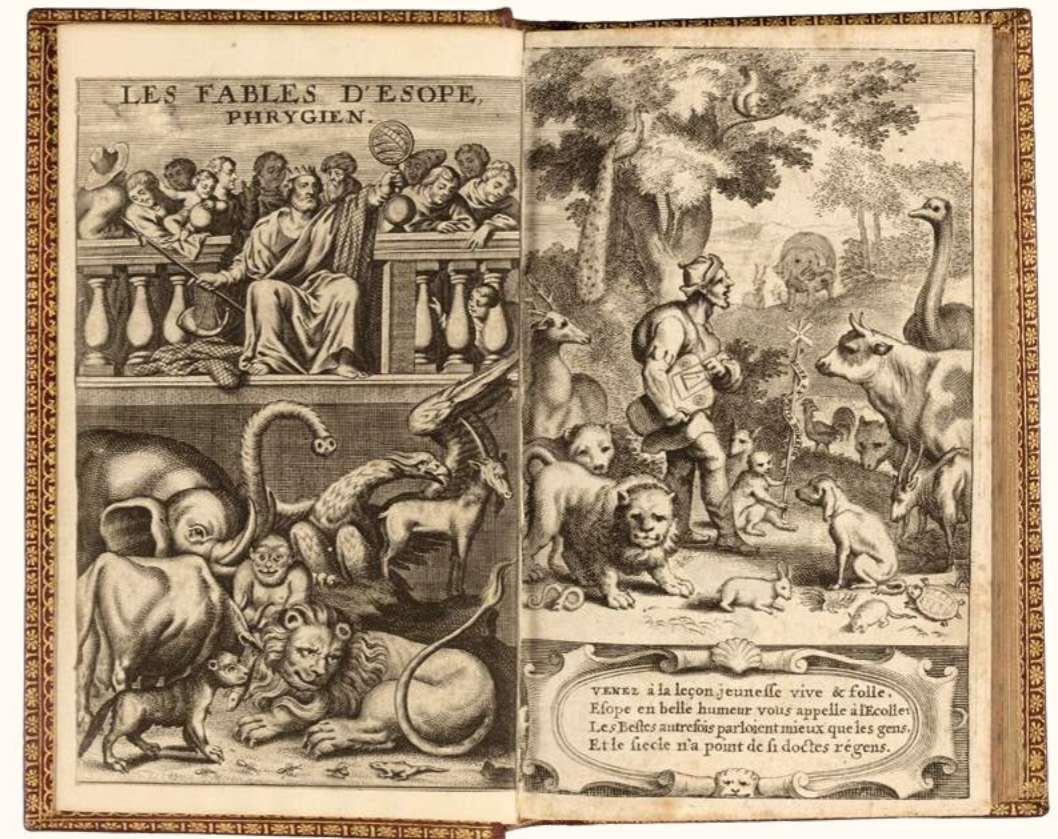 LES FABLES D'ESOPE,
PHRYGIEN.
VENEZ à la leçon, jeuneſſe vive & folle.
Eſope en belle humeur vous appelle à l'Ecolle:
Les Beſtes autrefois parloient mieux que les gens.
Et le ſiecle n'a point de ſi doctes régens.